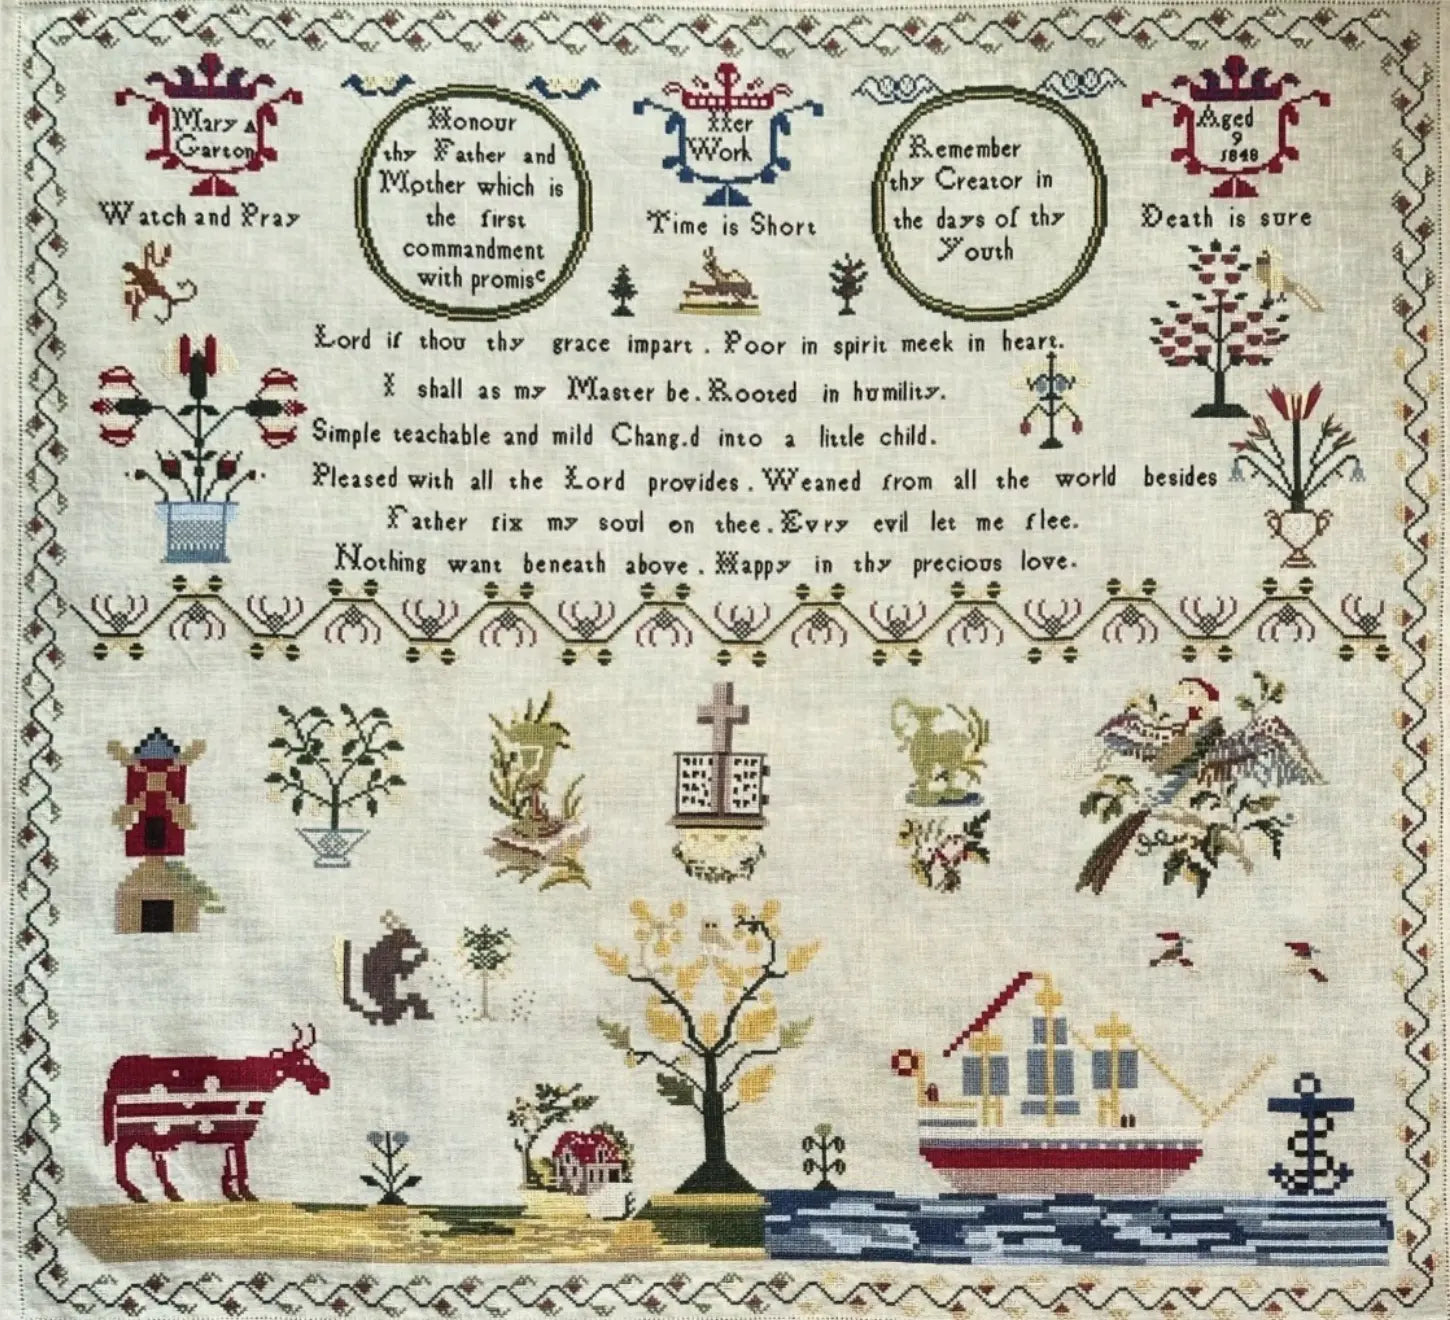 Mary A
Garton
Watch and Pray
Honour
thy Father and
Mother which is
the first
commandment
with promise
Her
Work
Time is Short
Remember
thy Creator in
the days of thy
Youth
Aged
9
1848
Death is sure
Lord if thou thy grace impart . Poor in spirit meek in heart.
I shall as my Master be . Rooted in humility.
Simple teachable and mild Chang.d into a little child.
Pleased with all the Lord provides . Weaned from all the world besides
Father fix my soul on thee . Evry evil let me flee.
Nothing want beneath above . Happy in thy precious love.